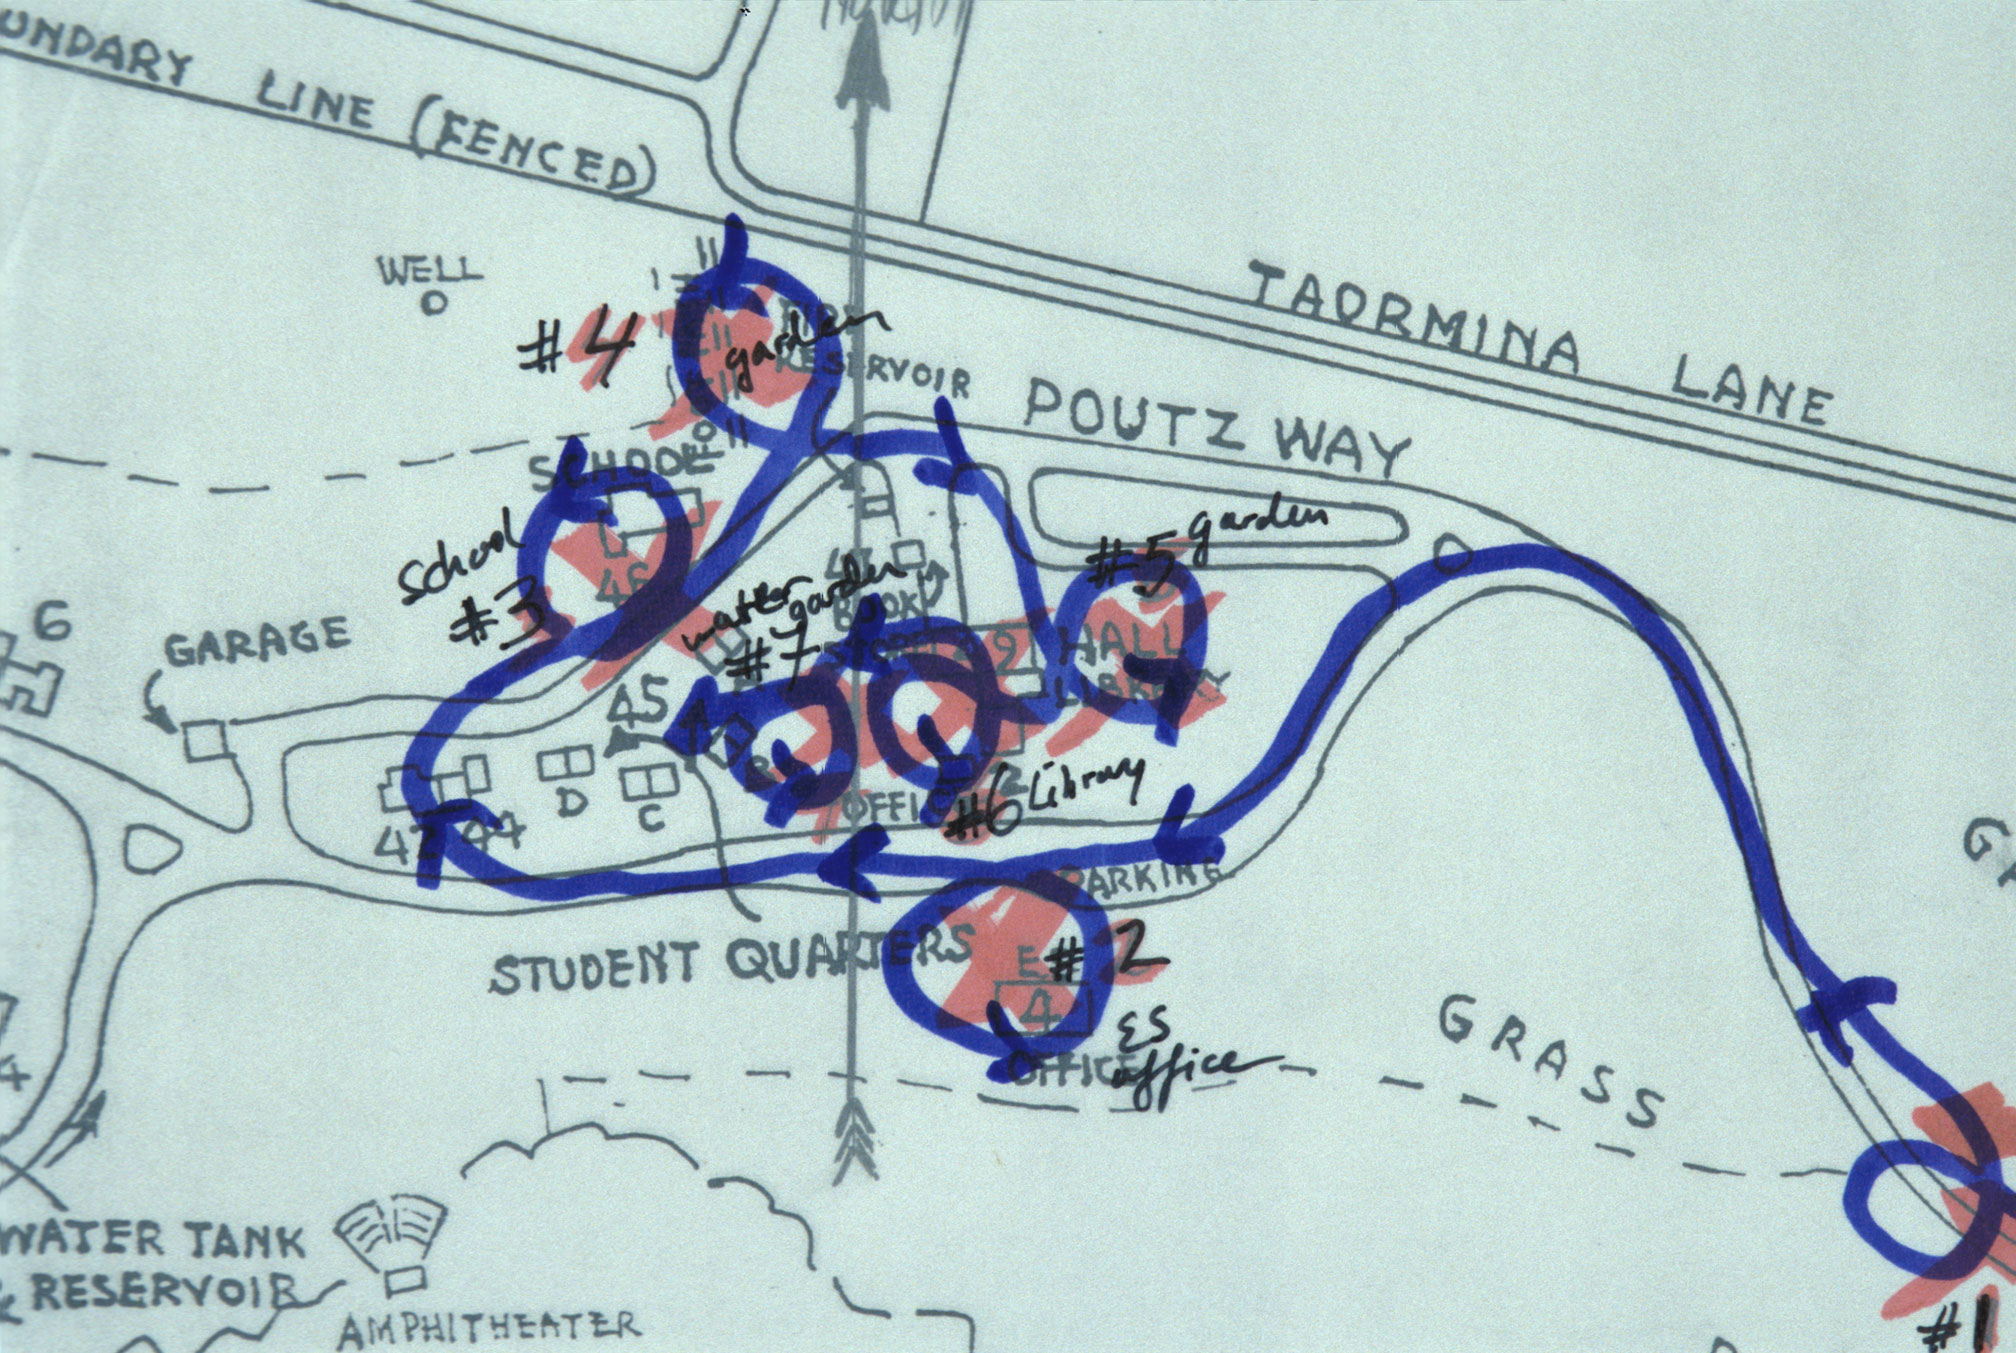 UNDARY LINE (FENCED)
TAORMINA LANE
WELL
#4
garden
RESERVOIR
POUTZ WAY
SCHOOL
School
#3
46
#5 garden
6
GARAGE
watter garden
#7
BOOK
HALL
LIBRARY
9
45
D
C
44
OFFICE
#6 Library
2
PARKING
STUDENT QUARTERS
E
#2
4
ES
office
OFFICE
GRASS
WATER TANK
& RESERVOIR
AMPHITHEATER
#1